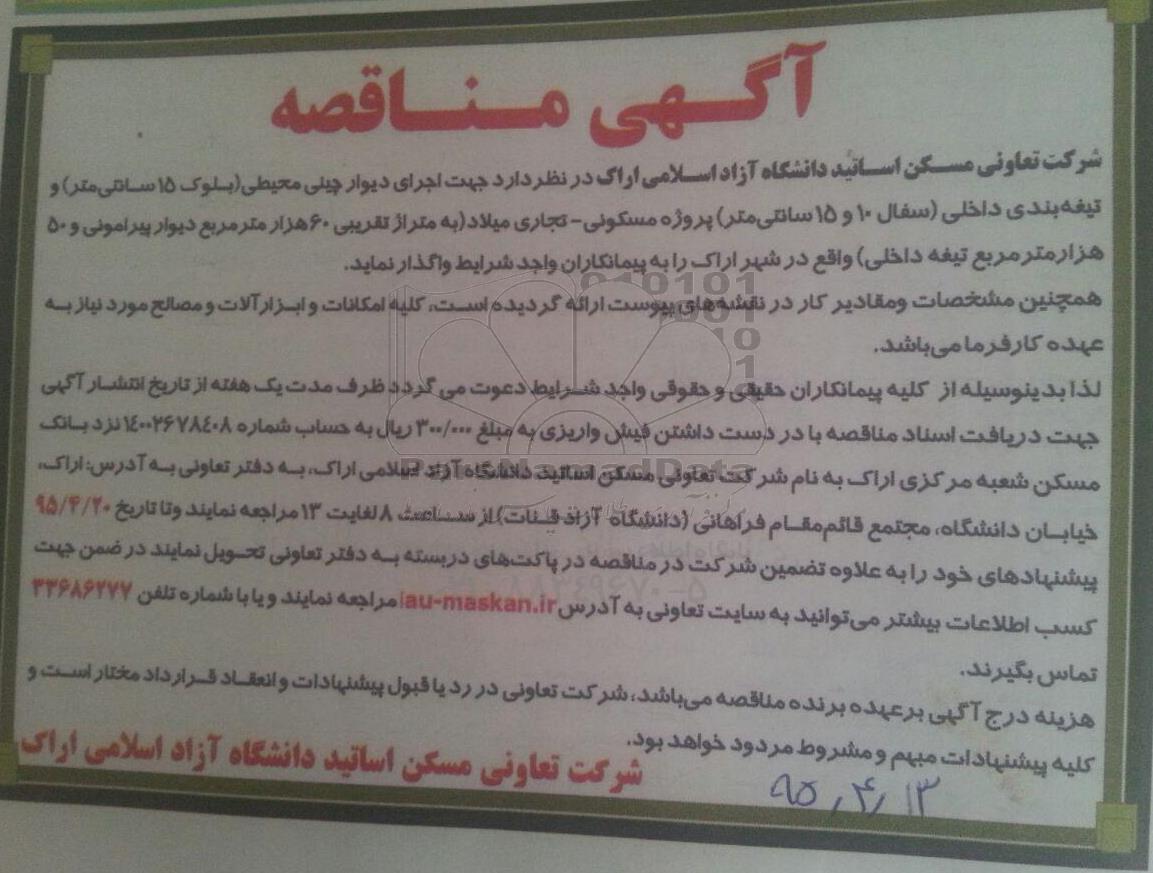 آگهی مناقصه
شرکت تعاونی مسکن اساتید دانشگاه آزاد اسلامی اراک در نظر دارد جهت اجرای دیوار چینی محیطی(بلوک ۱۵ سانتی‌متر) و
تیغه‌بندی داخلی (سفال ۱۰ و ۱۵ سانتی‌متر) پروژه مسکونی- تجاری میلاد(به متراژ تقریبی ۶۰هزار مترمربع دیوار پیرامونی و ۵۰
هزار متر مربع تیغه داخلی) واقع در شهر اراک را به پیمانکاران واجد شرایط واگذار نماید.
همچنین مشخصات ومقادیر کار در نقشه‌های پیوست ارائه گردیده است، کلیه امکانات و ابزارآلات و مصالح مورد نیاز به
عهده کارفرما می‌باشد.
لذا بدینوسیله از کلیه پیمانکاران حقیقی و حقوقی واجد شرایط دعوت می گردد ظرف مدت یک هفته از تاریخ انتشار آگهی
جهت دریافت اسناد مناقصه با در دست داشتن فیش واریزی به مبلغ ۳۰۰/۰۰۰ ریال به حساب شماره ۱۴۰۰۲۶۷۸۴۰۸ نزد بانک
مسکن شعبه مرکزی اراک به نام شرکت تعاونی مسکن اساتید دانشگاه آزاد اسلامی اراک، به دفتر تعاونی به آدرس: اراک،
خیابان دانشگاه، مجتمع قائم‌مقام فراهانی (دانشگاه آزاد قنات) از ساعت ۸ لغایت ۱۳ مراجعه نمایند وتا تاریخ ۹۵/۴/۲۰
پیشنهادهای خود را به علاوه تضمین شرکت در مناقصه در پاکت‌های دربسته به دفتر تعاونی تحویل نمایند در ضمن جهت
کسب اطلاعات بیشتر می‌توانید به سایت تعاونی به آدرس iau-maskan.ir مراجعه نمایند و یا با شماره تلفن ۳۳۶۸۶۲۷۷
تماس بگیرند.
هزینه درج آگهی بر عهده برنده مناقصه می‌باشد، شرکت تعاونی در رد یا قبول پیشنهادات و انعقاد قرارداد مختار است و
کلیه پیشنهادات مبهم و مشروط مردود خواهد بود.
شرکت تعاونی مسکن اساتید دانشگاه آزاد اسلامی اراک
۹۵/۴/۱۳